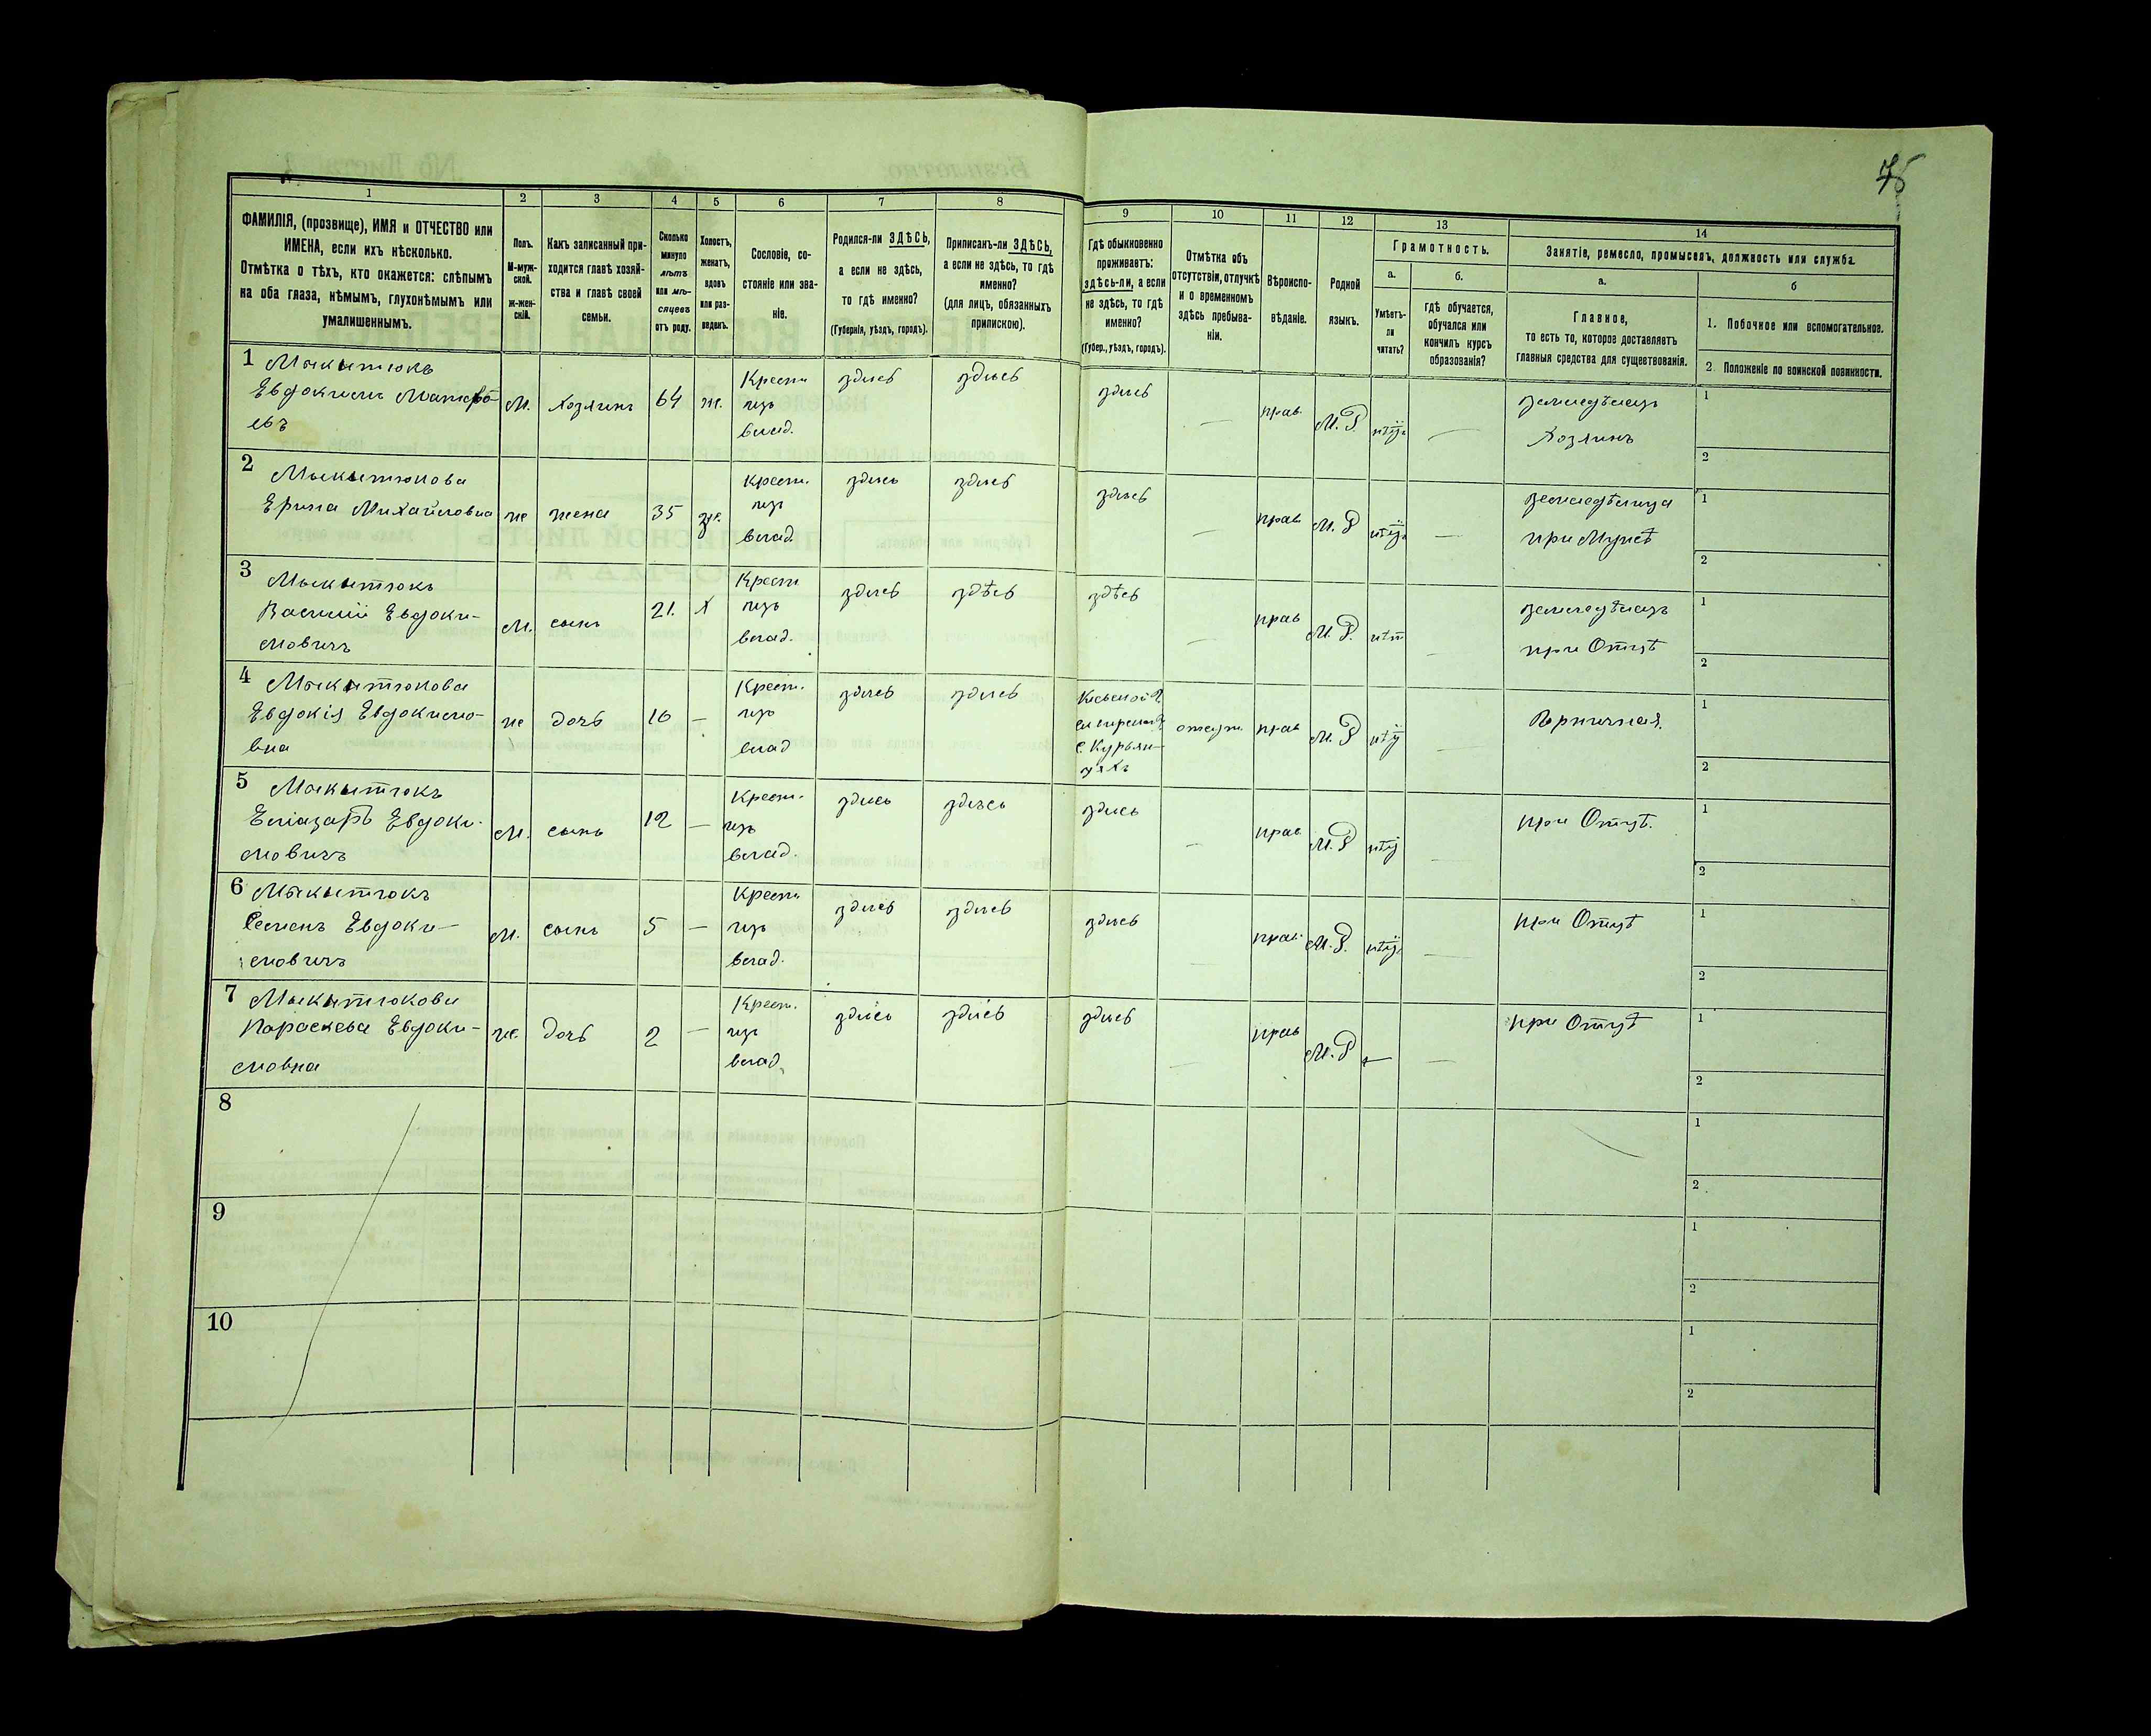 75
1
2
3
4
5
6
7
8
9
10
11
12
13
14
ФАМИЛІЯ, (прозвище), ИМЯ и ОТЧЕСТВО или
ИМЕНА, если ихъ нѣсколько.
Отмѣтка о тѣхъ, кто окажется: слѣпымъ
на оба глаза, нѣмымъ, глухонѣмымъ или
умалишеннымъ.
Полъ.
М-муж-
ской.
ж-жен-
скій.
Какъ записанный при-
ходится главѣ хозяй-
ства и главѣ своей
семьи.
Сколько
минуло
лѣтъ
или мѣ-
сяцевъ
отъ роду.
Холостъ,
женатъ,
вдовъ
или раз-
веденъ.
Сословіе, со-
стояніе или зва-
ніе.
Родился-ли ЗДѢСЬ,
а если не здѣсь,
то гдѣ именно?
(Губернія, уѣздъ, городъ).
Приписанъ-ли ЗДѢСЬ,
а если не здѣсь, то гдѣ
именно?
(для лицъ, обязанныхъ
припискою).
Гдѣ обыкновенно
проживаетъ:
здѣсь-ли, а если
не здѣсь, то гдѣ
именно?
(Губер., уѣздъ, городъ).
Отмѣтка объ
отсутствіи, отлучкѣ
и о временномъ
здѣсь пребыва-
ніи.
Вѣроиспо-
вѣданіе.
Родной
языкъ.
Грамотность.
а.
Умѣетъ-
ли
читать?
б.
гдѣ обучается,
обучался или
кончилъ курсъ
образованія?
Занятіе, ремесло, промыселъ, должность или служба.
а.
Главное,
то есть то, которое доставляетъ
главныя средства для существованія.
б
1. Побочное или вспомогательное.
2. Положеніе по воинской повинности.
1 Мыкитюкъ
Евдокимъ
евъ
М. Хозяинъ 64 ж.
Крест.
изъ
влад.
здѣсь здѣсь здѣсь — прав. М. Р. нѣтъ —
земледѣлецъ
Хозяинъ
1
2
2 Мыкитюкова
Ерина Михайловна
же жена 35 за.
Крест.
изъ
влад.
здѣсь здѣсь здѣсь — прав. М. Р нѣтъ —
земледѣлица
при Мужѣ
1
2
3 Мыкитюкъ
Василій Евдоки-
мовичъ
М. сынъ 21. Х
Крест
изъ
влад.
здѣсь здѣсь здѣсь — прав М. Р. нѣт —
земледѣлецъ
при Отцѣ
1
2
4 Мыкитюкова
Евдокія Евдокимо-
вна
же дочь 16 —
Крест.
изъ
влад
здѣсь здѣсь
Кіевской г.
отсут. прав М. Р нѣт —
Горничная.
1
2
5 Мыкитюкъ
Еліазаръ Евдоки-
мовичъ
М. сынъ 12 —
Крест.
изъ
влад.
здѣсь здѣсь здѣсь — прав М. Р нѣт —
при Отцѣ.
1
2
6 Мыкитюкъ
Семенъ Евдоки-
мовичъ
М. сынъ 5 —
Крест
изъ
влад.
здѣсь здѣсь здѣсь — прав. М. Р. нѣт. —
при Отцѣ
1
2
7 Мыкитюкова
Параскева Евдоки-
мовна
же. дочь 2 —
Крест.
изъ
влад.
здѣсь здѣсь здѣсь — прав М. Р — —
при Отцѣ
1
2
8
1
2
9
1
2
10
1
2